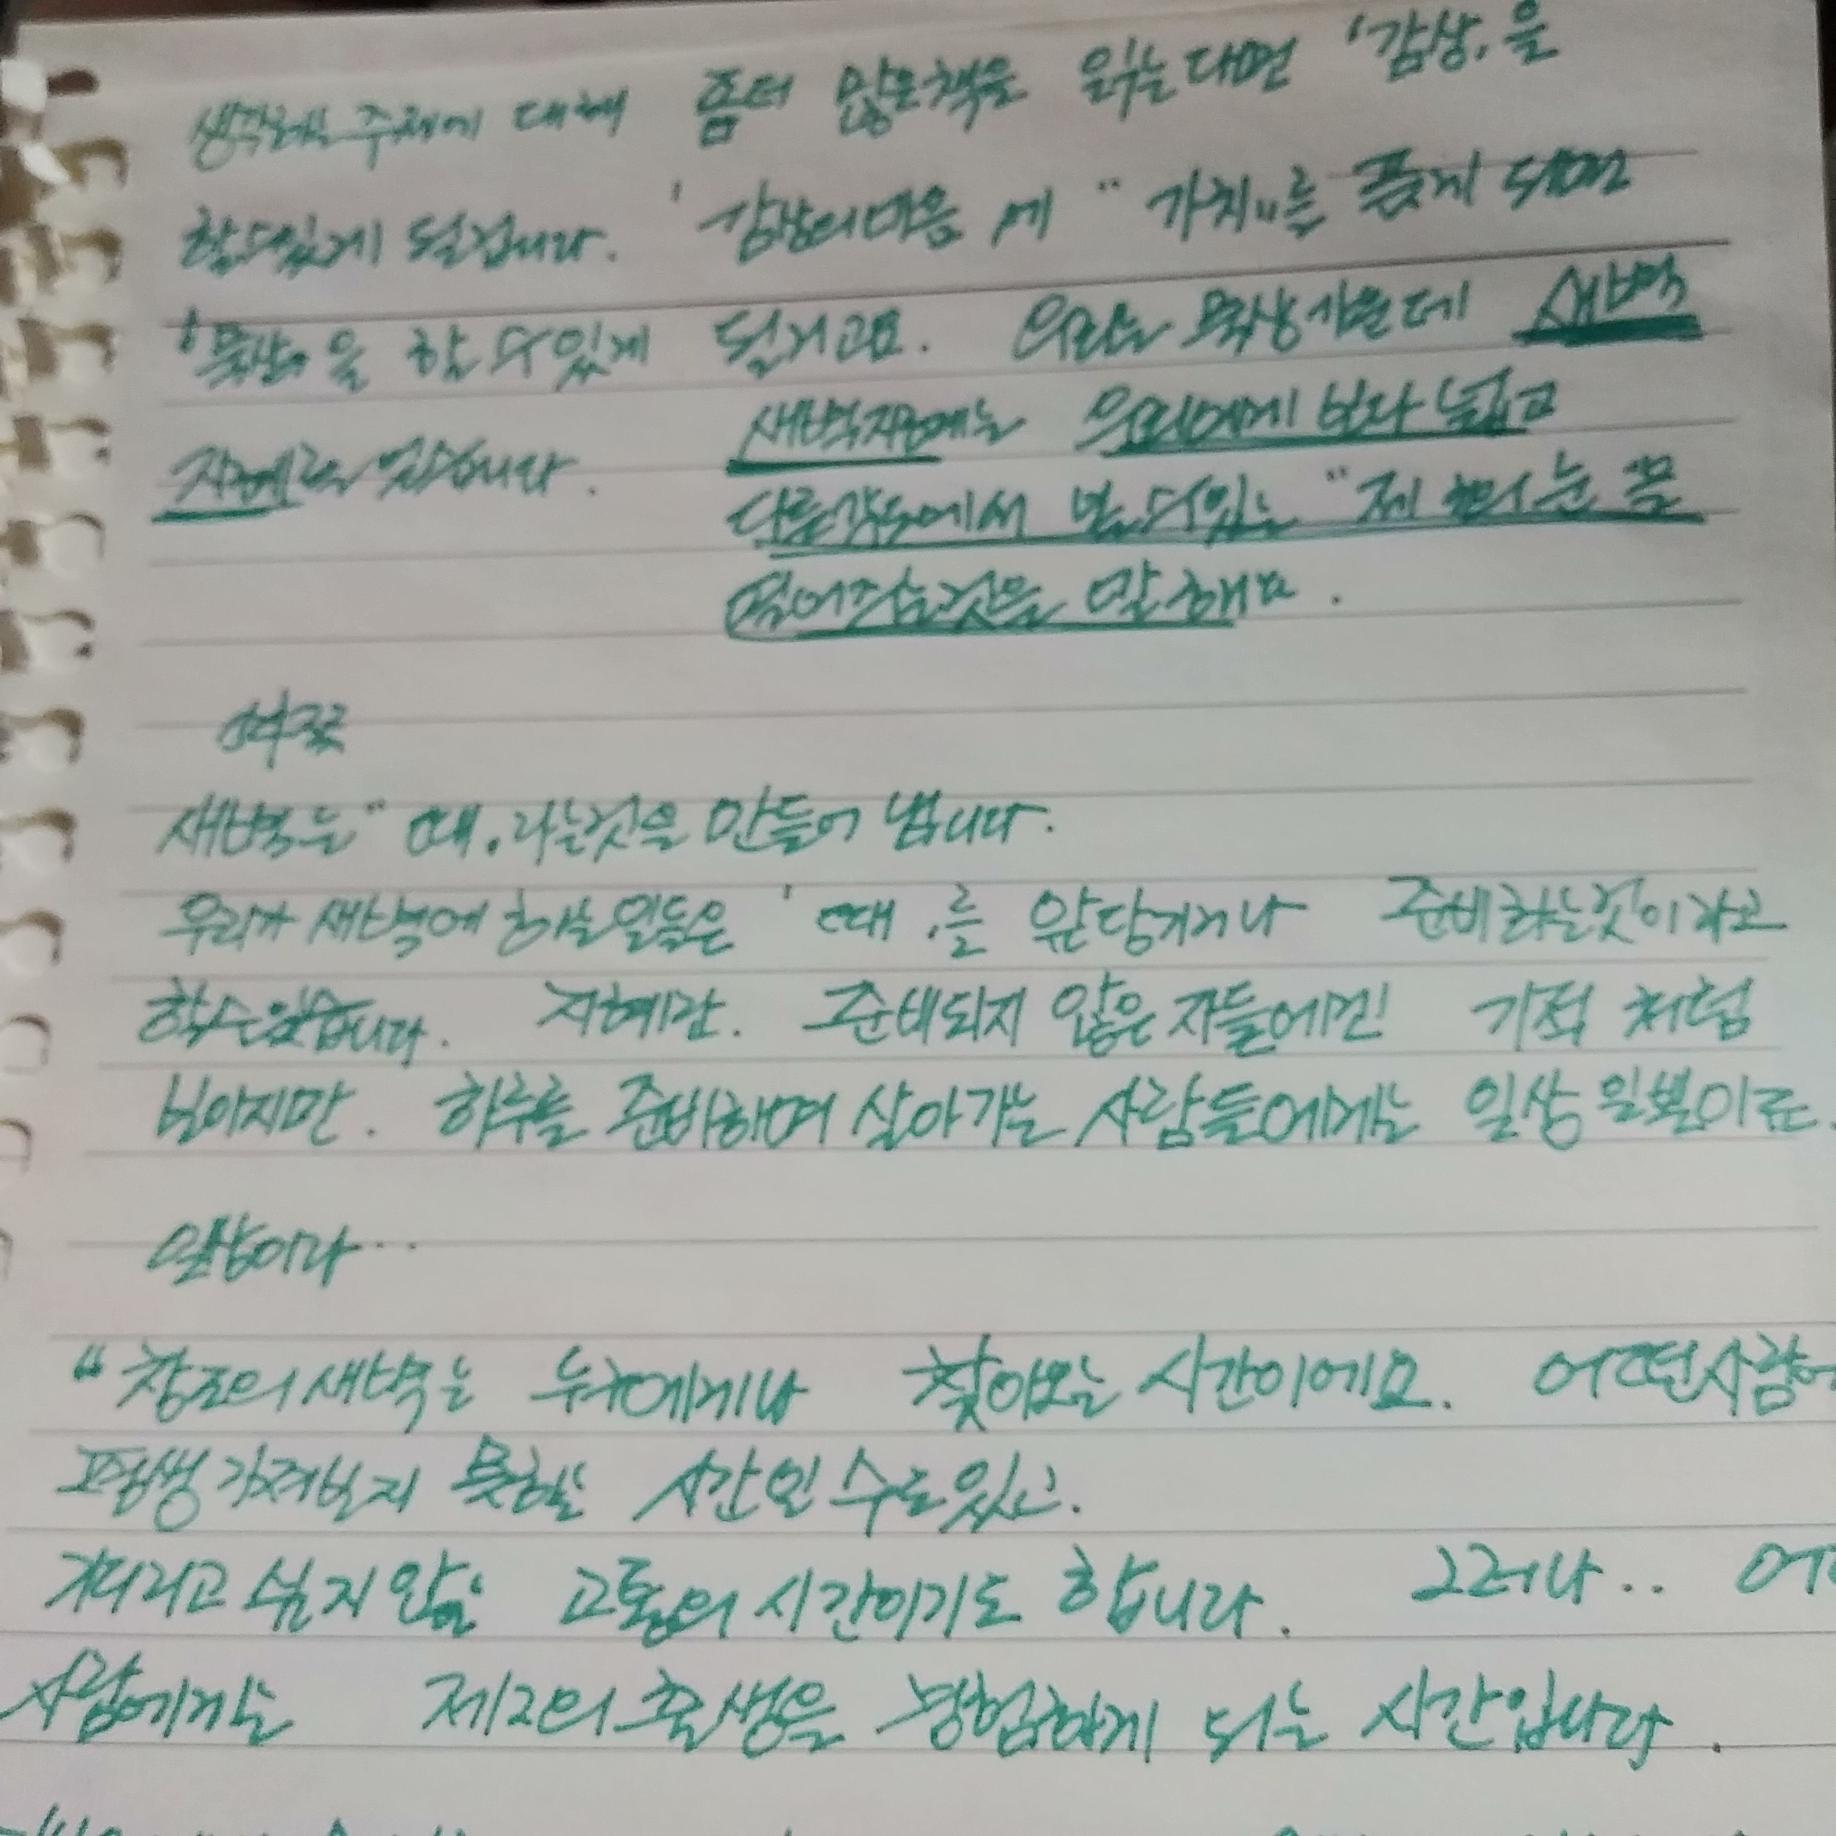 생각하는 주제에 대해 좀더 많은책을 읽는다면 '감상,을
할수있게 될겁니다. '감상의마음 에 "가치"를 품게 되면
'묵상,을 할 수있게 될거고요. 우리는 묵상가운데 새벽
지혜를 얻습니다. 새벽지혜는 우리에게 보다 넓고
다른각도에서 볼 수있는 "제 의 눈 을
것을 말 해요.
새벽는 "때,라는것을 만들어 냅니다.
우리가 새벽에 하는일들은 '때,를 앞당기거나 준비하는것이라고
할수있습니다. 지혜란. 준비되지 않은 자들에겐 기적 처럼
보이지만. 하루를 준비하며 살아가는 사람들에게는 일상 일뿐이죠.
일상이라..
"창조의 새벽는 누구에게나 찾아오는 시간이에요. 어떤사람에
평생 가져보지 못할 시간 일 수도 있고.
고 싶지 않을 고통의 시간이기도 합니다. 그러나.. 어
사람에게는 제2의 출생을 경험하게 되는 시간입니다.